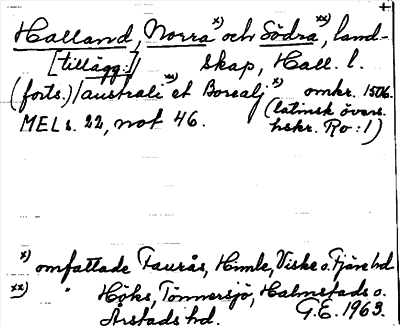 Halland, Norra x) och Södra xx), land-
[tillägg:] skap, Hall. l.
(forts.)/australi xx) et Boreali x) omkr. 1506.
(latinsk övers.
MEL s. 22, not 46. hskr. Ro:1)
x) omfattade Faurås, Himle, Viske o. Fjäre hd
xx) " Höks, Tönnersjö, Halmstads o.
Årstads hd. G.E. 1963.